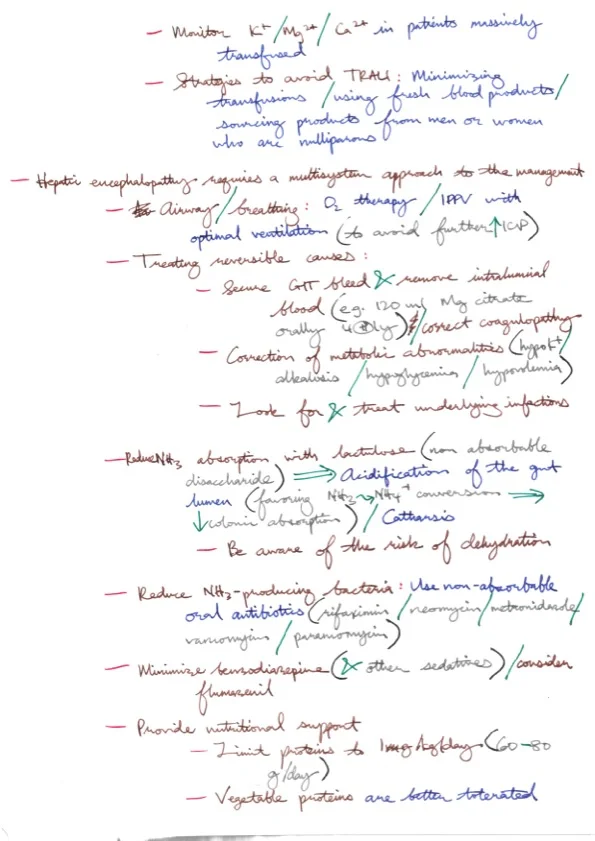 — Monitor K⁺/Mg²⁺/Ca²⁺ in patients massively
transfused
— Strategies to avoid TRALI: Minimizing
transfusions / using fresh blood products/
sourcing products from men or women
who are nulliparous
— Hepatic encephalopathy requires a multisystem approach to the management
— Airway/breathing: O₂ therapy / IPPV with
optimal ventilation (to avoid further ↑ICP)
— Treating reversible causes:
— Secure GIT bleed & remove intraluminal
blood (eg. 120 ml Mg citrate
orally 4 ly)/correct coagulopathy
— Correction of metabolic abnormalities (hypoK⁺/
alkalosis / hypoglycemia / hypovolemia)
— Look for & treat underlying infections
— Reduce NH₃ absorption with lactulose (non absorbable
disaccharide) ⟹ Acidification of the gut
lumen (favoring NH₃→NH₄⁺ conversion ⟹
↓colonic absorption)/ Catharsis
— Be aware of the risk of dehydration
— Reduce NH₃-producing bacteria: Use non-absorbable
oral antibiotics (rifaximin / neomycin/metronidazole/
vancomycin / paromomycin)
— Minimize benzodiazepine (& other sedatives)/consider
flumazenil
— Provide nutritional support
— Limit proteins to /kg/day (60-80
g/day)
— Vegetable proteins are better tolerated